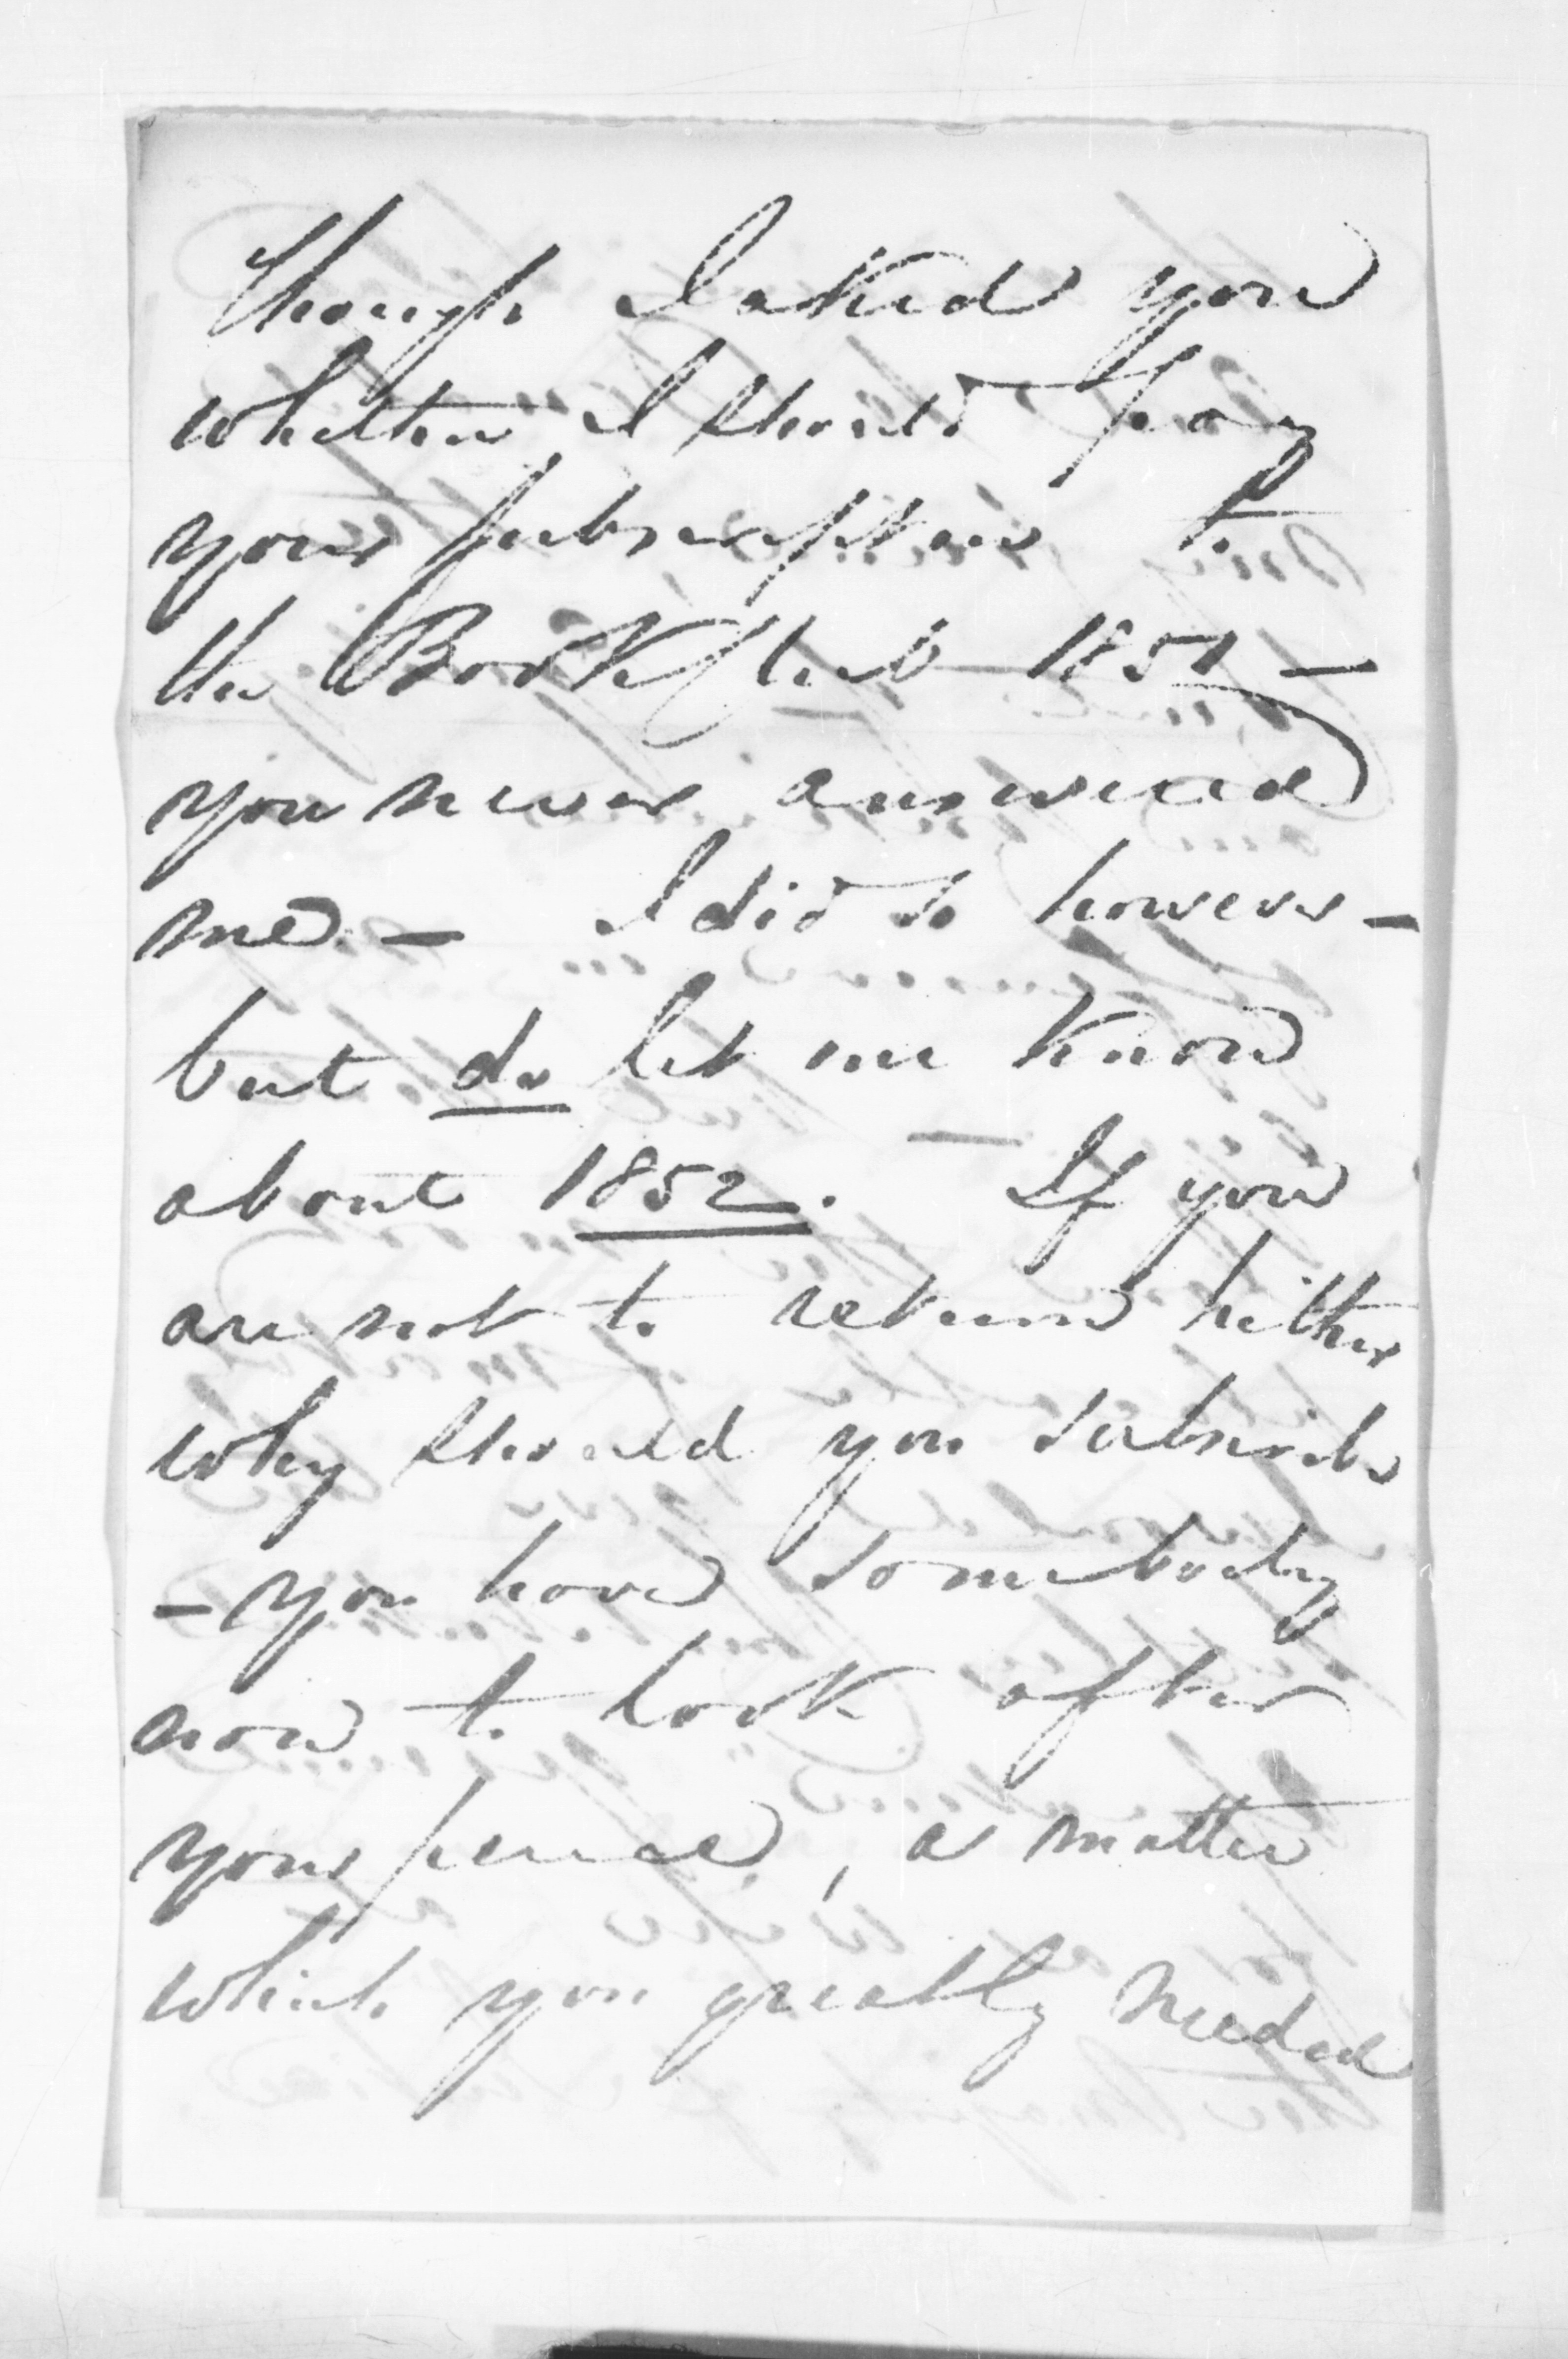 though I asked you
whether I should pay
your subscription to
the Book Club 1851 —
you never answered
me. — I did so however —
but do let me know
about 1852. — If you
are not to return hither
why should you subscribe
— you have somebody
now to look after
your pence, a matter
which you greatly needed